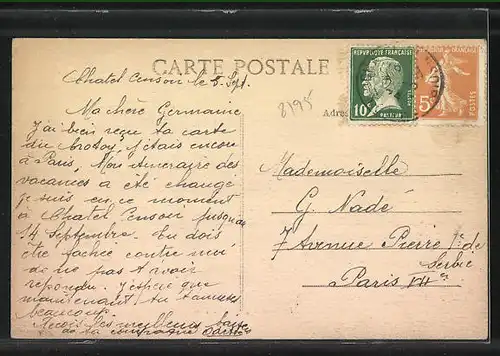 CARTE POSTALE
Chatel Censon le 5 Sept.
Ma chère Germaine
J'ai bien reçu ta carte
du Crotoy, j'étais encore
à Paris. Mon itinéraire des
vacances a été changé
je suis en ce moment
à Chatel Censon jusqu'au
14 Septembre. Tu dois
être fachée contre moi
de ne pas t'avoir
répondu. J'espère que
maintenant tu t'amuses
beaucoup.
Reçois les meilleurs
de ta
8195
Adres
REPUBLIQUE FRANÇAISE
10c
POSTES
PASTEUR
FRANÇAISE
5c
Mademoiselle
G. Nadé
7 Avenue Pierre 1er de
Serbie
Paris